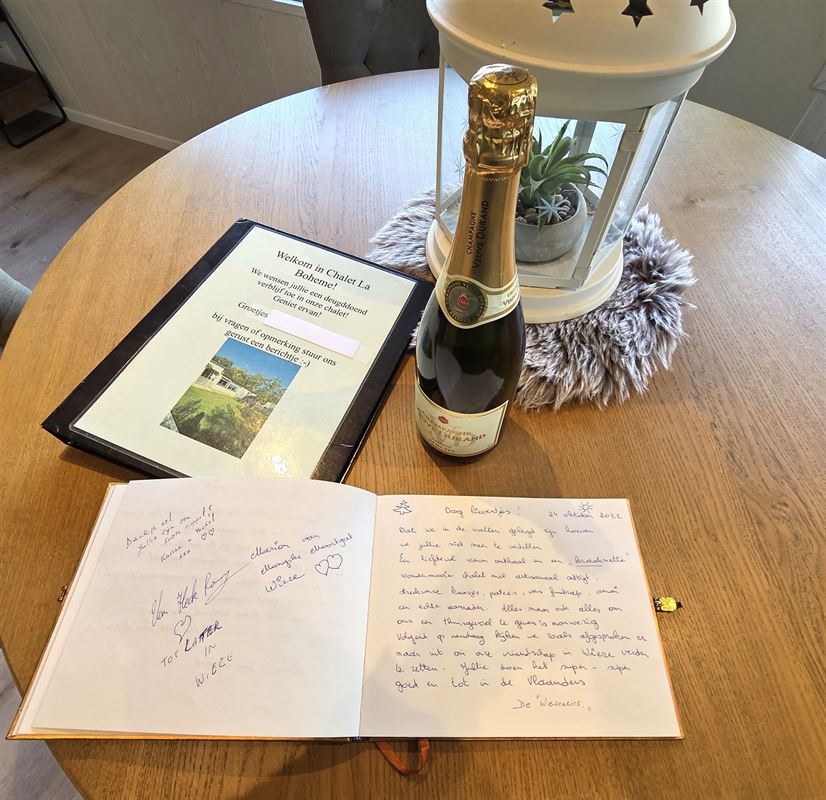 Welkom in Chalet La
Boheme!
We wensen jullie een deugddoend
verblijf toe in onze chalet!
Geniet ervan!
Groetjes
bij vragen of opmerking stuur ons
gerust een berichtje ;-)
CHAMPAGNE
VEUVE DURAND
CHAMPAGNE
VEUVE DURAND
Dankje wel
Jullie zijn
xxx
Marian van
Wieze
Van Hock
TOT LATER
IN
WIEZE
Dag lievertjes! 24 oktober 2022
Dat we in de watten gelegd zijn hoeven
we jullie niet meer te vertellen
En liefdevol warm onthaal in en "kraaknette"
wondermooie chalet met artisanaal ontbijt,
streekverse kaasjes, patees, vers fruitsap,
en echte aanraders. Alles maar ook alles om
ons en thuisgevoel te geven is aanwezig
Volgend op vandaag kijken we zoals afgesproken er
naar uit om onze vriendschap in Wieze verder
te zetten. Jullie doen het super - super
goed en tot in de Vlaanders.
De "Wiezeneirs"